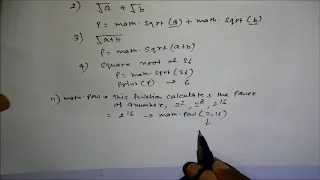 2) √a + √b
P = math.sqrt(a) + math.sqrt(b)
3) √a+b
P = math.sqrt(a+b)
4) Square root of 36
P = math.sqrt(36)
print(P) → 6
11) math.pow → this function calculate s the power
of a number, 2², 2⁸, 2¹⁶
= 2¹⁶ → math.pow(2,16)